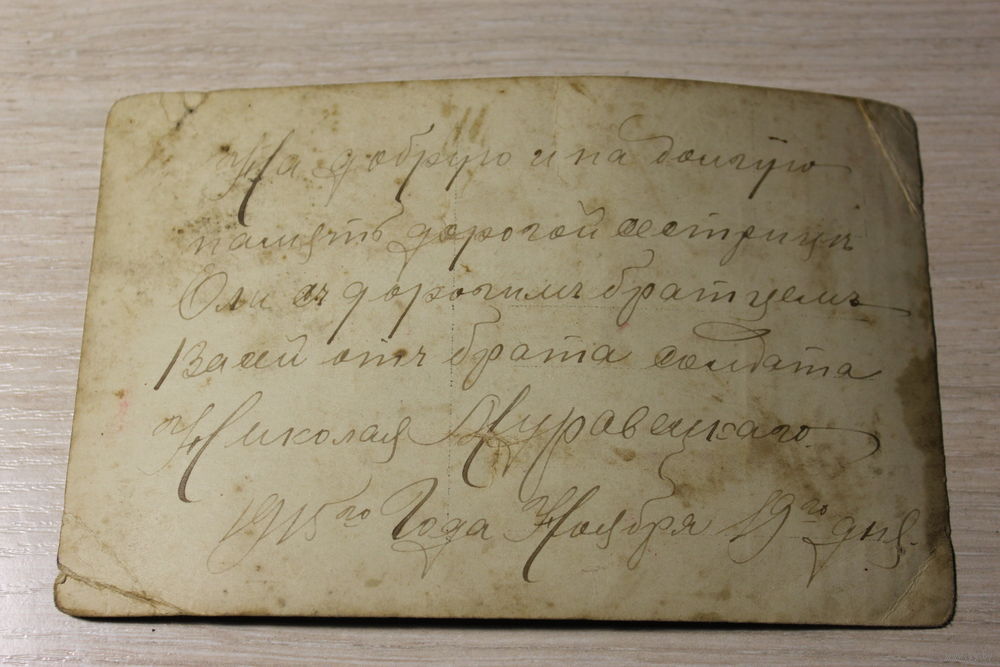 На добрую и на долгую
память дорогой сестрицъ
Оли съ дорогимъ братцемъ
Васей отъ брата солдата
Николая
1915го Года Ноября 19го дня.